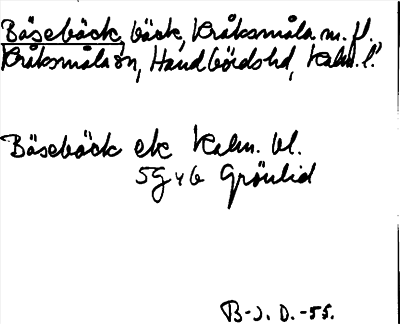 Bäsebäck, bäck, Kråksmåla m. fl.
Kråksmåla sn, Handbörds hd, Kalm. l.
Bäsebäck ek Kalm. bl.
5G Grönlid
B-J. D. -55.